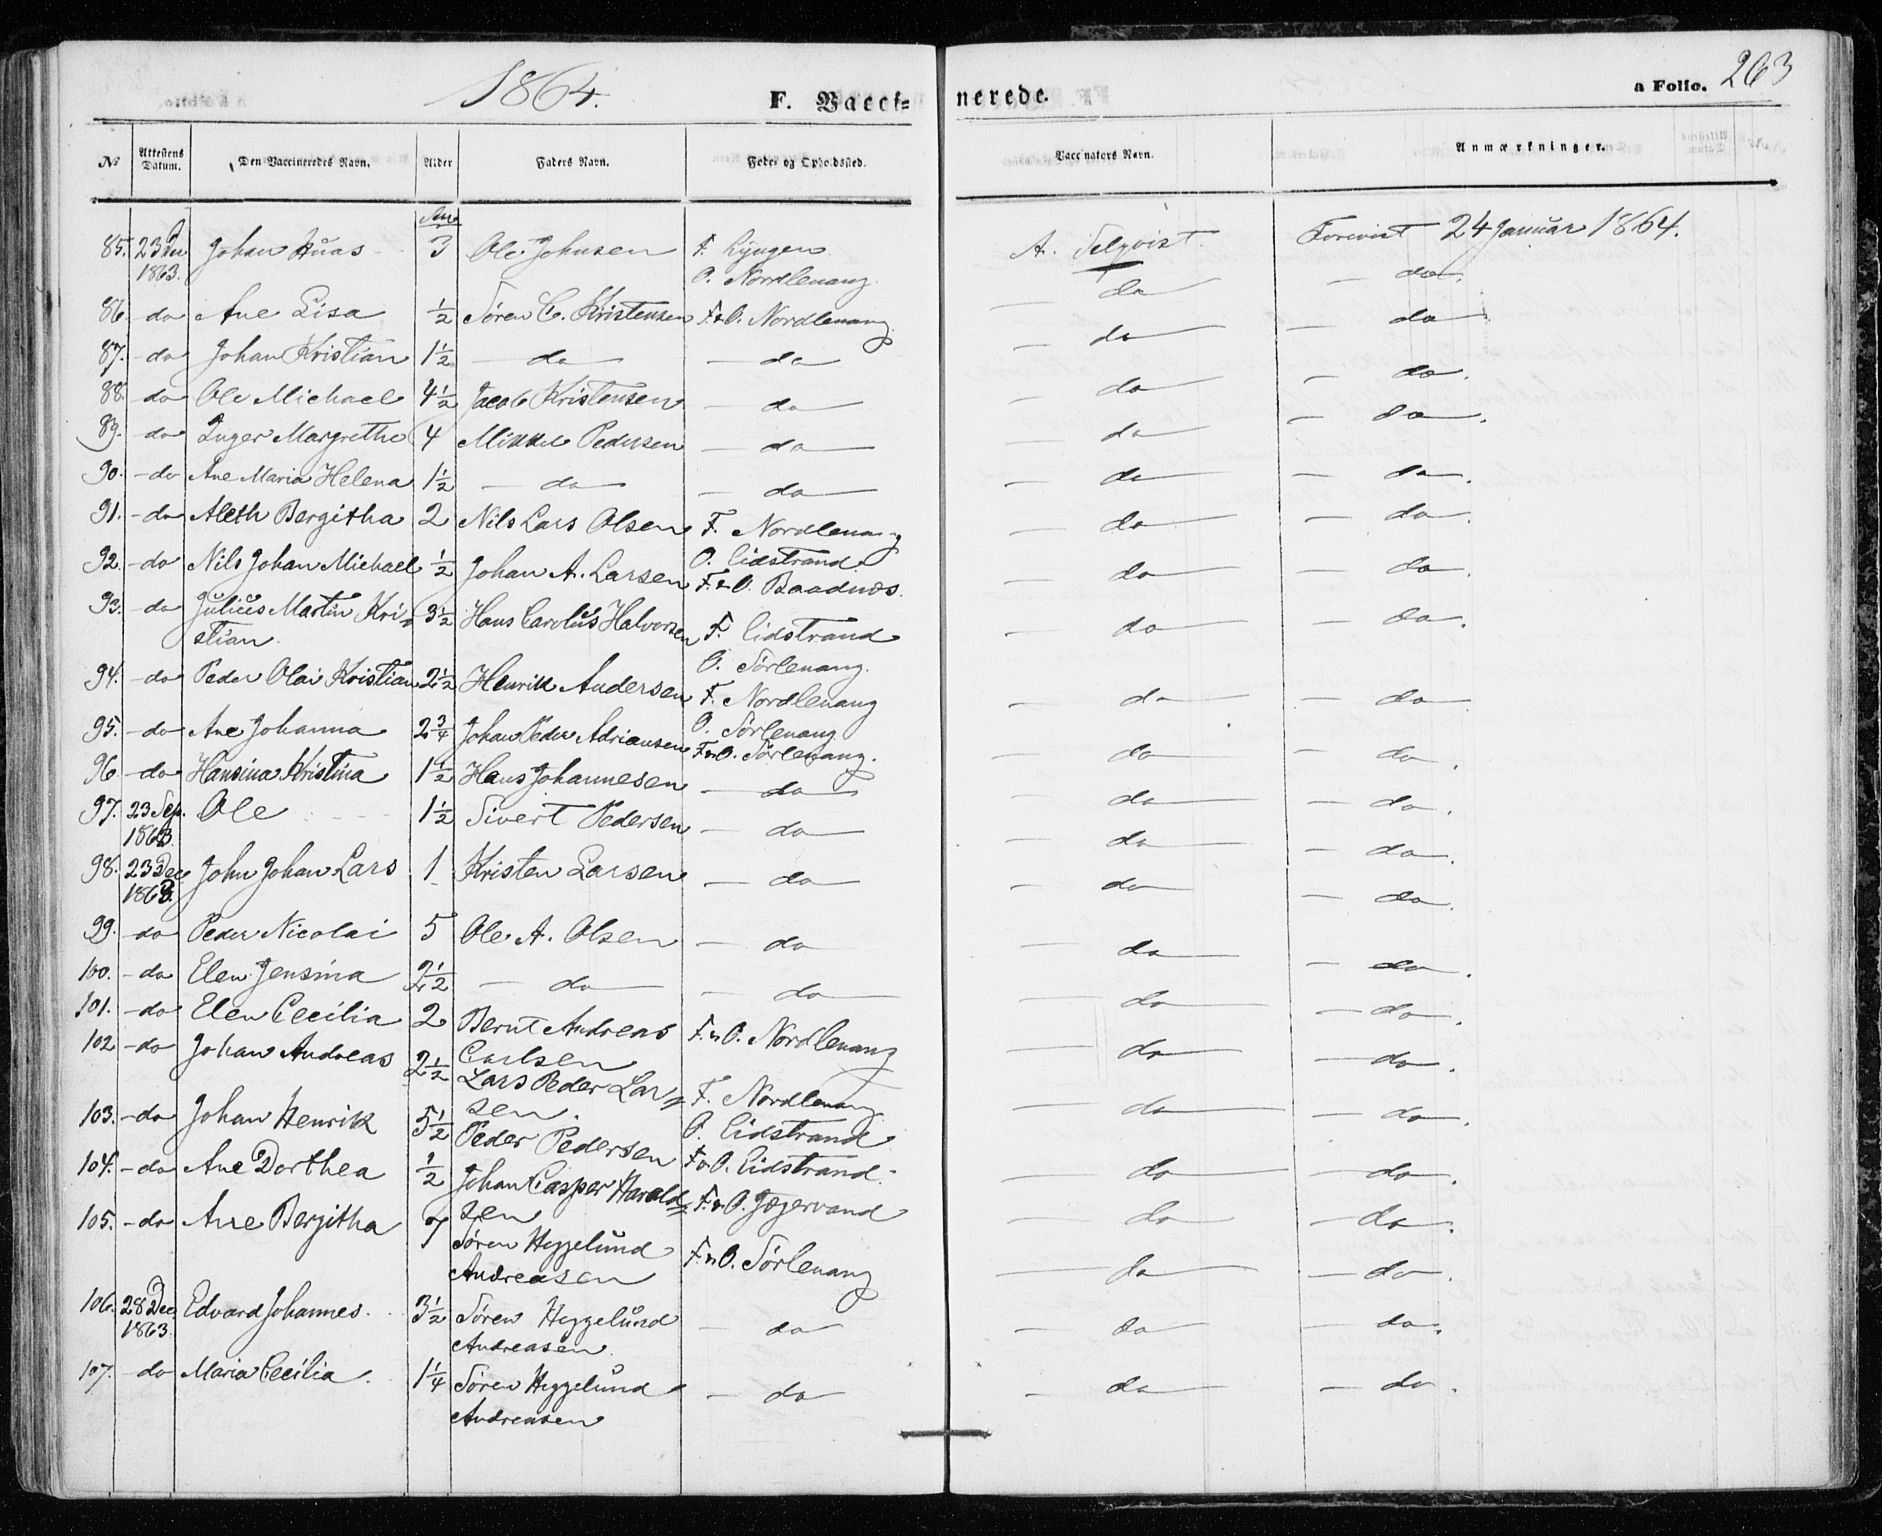 1864.
F. Vacci=
nerede.
a Folio. 263
No
Attestens Datum.
Den Vaccineredes Navn.
Alder
Faders Navn.
Føde- og Opholdssted.
Vaccinators Navn.
Anmærkninger.
85. 23 Dec Johan 3 Ole Johnsen F. Lyngen A. Selqvist. Forevist 24 Januar 1864.
1863. O. Nordlenang
86. - do Ane Lisa ½ Søren C. Kristensen F. & O. Nordlenang. — da — — da.
87. - do Johan Kristian 1½ — da — — da — — da — — da
88. - do Ole Michael 4½ Jacob Kristensen — da — — da — — da.
89. - do Inger Margrethe 4 Mikkel Pedersen — da — — da — — da.
90. - do Ane Maria Helena 1½ — da — — da — — da — — da.
91. - do Aleth Bergitha 2 Nils Lars Olsen F. Nordlenang — da — — da.
O. Eidstrand
92. - do Nils Johan Michael ½ Johan A. Larsen F. & O. Baadnæs. — da — — da.
93. - do Julius Martin Kri= 3½ Hans Carolus Halvorsen F. Eidstrand — da — — da.
stian. O. Sørlenang.
94. - do Peder Olai Kristian 2½ Henrik Andersen F. Nordlenang — da — — da
O. Sørlenang
95. - do Ane Johanna 2¾ Johan Peder Adriansen F. & O. Sørlenang. — da — — da.
96. - do Hansina Kristina 1½ Hans Johannesen — da — — da — — da.
97. 23 Sep. Ole 1½ Sivert Pedersen — da — — da — — da.
1863.
98. 23 Dec John Johan Lars 1 Kristen Larsen — da — — da — — da.
1863.
99. - do Peder Nicolai 5 Ole A. Olsen — da — — da — — da.
100. - do Elen Jensina 2½ — da — — da — — da — — da.
101. - do Elen Cecilia 2 Bernt Andreas F. & O. Nordlenang — da — — da.
Carlsen
102 - do Johan Andreas 2½ Lars Peder Lar= F. Nordlenang — da — — da.
sen. O. Eidstrand
103. - do Johan Henrik 5½ Peder Pedersen F. & O. Eidstrand. — da — — da.
104. - do Ane Dorthea ½ Johan Casper Harald= F. & O. Jægervand — da — — da.
sen
105. - do Ane Bergitha 7 Søren Heggelund F. & O. Sørlenang — da — — da.
Andreasen
106. 28 Dec Edvard Johannes. 3½ Søren Heggelund — da — — da — — da.
1863. Andreasen.
107. - do Maria Cecilia. 1¼ Søren Heggelund — da — — da — — da.
Andreasen